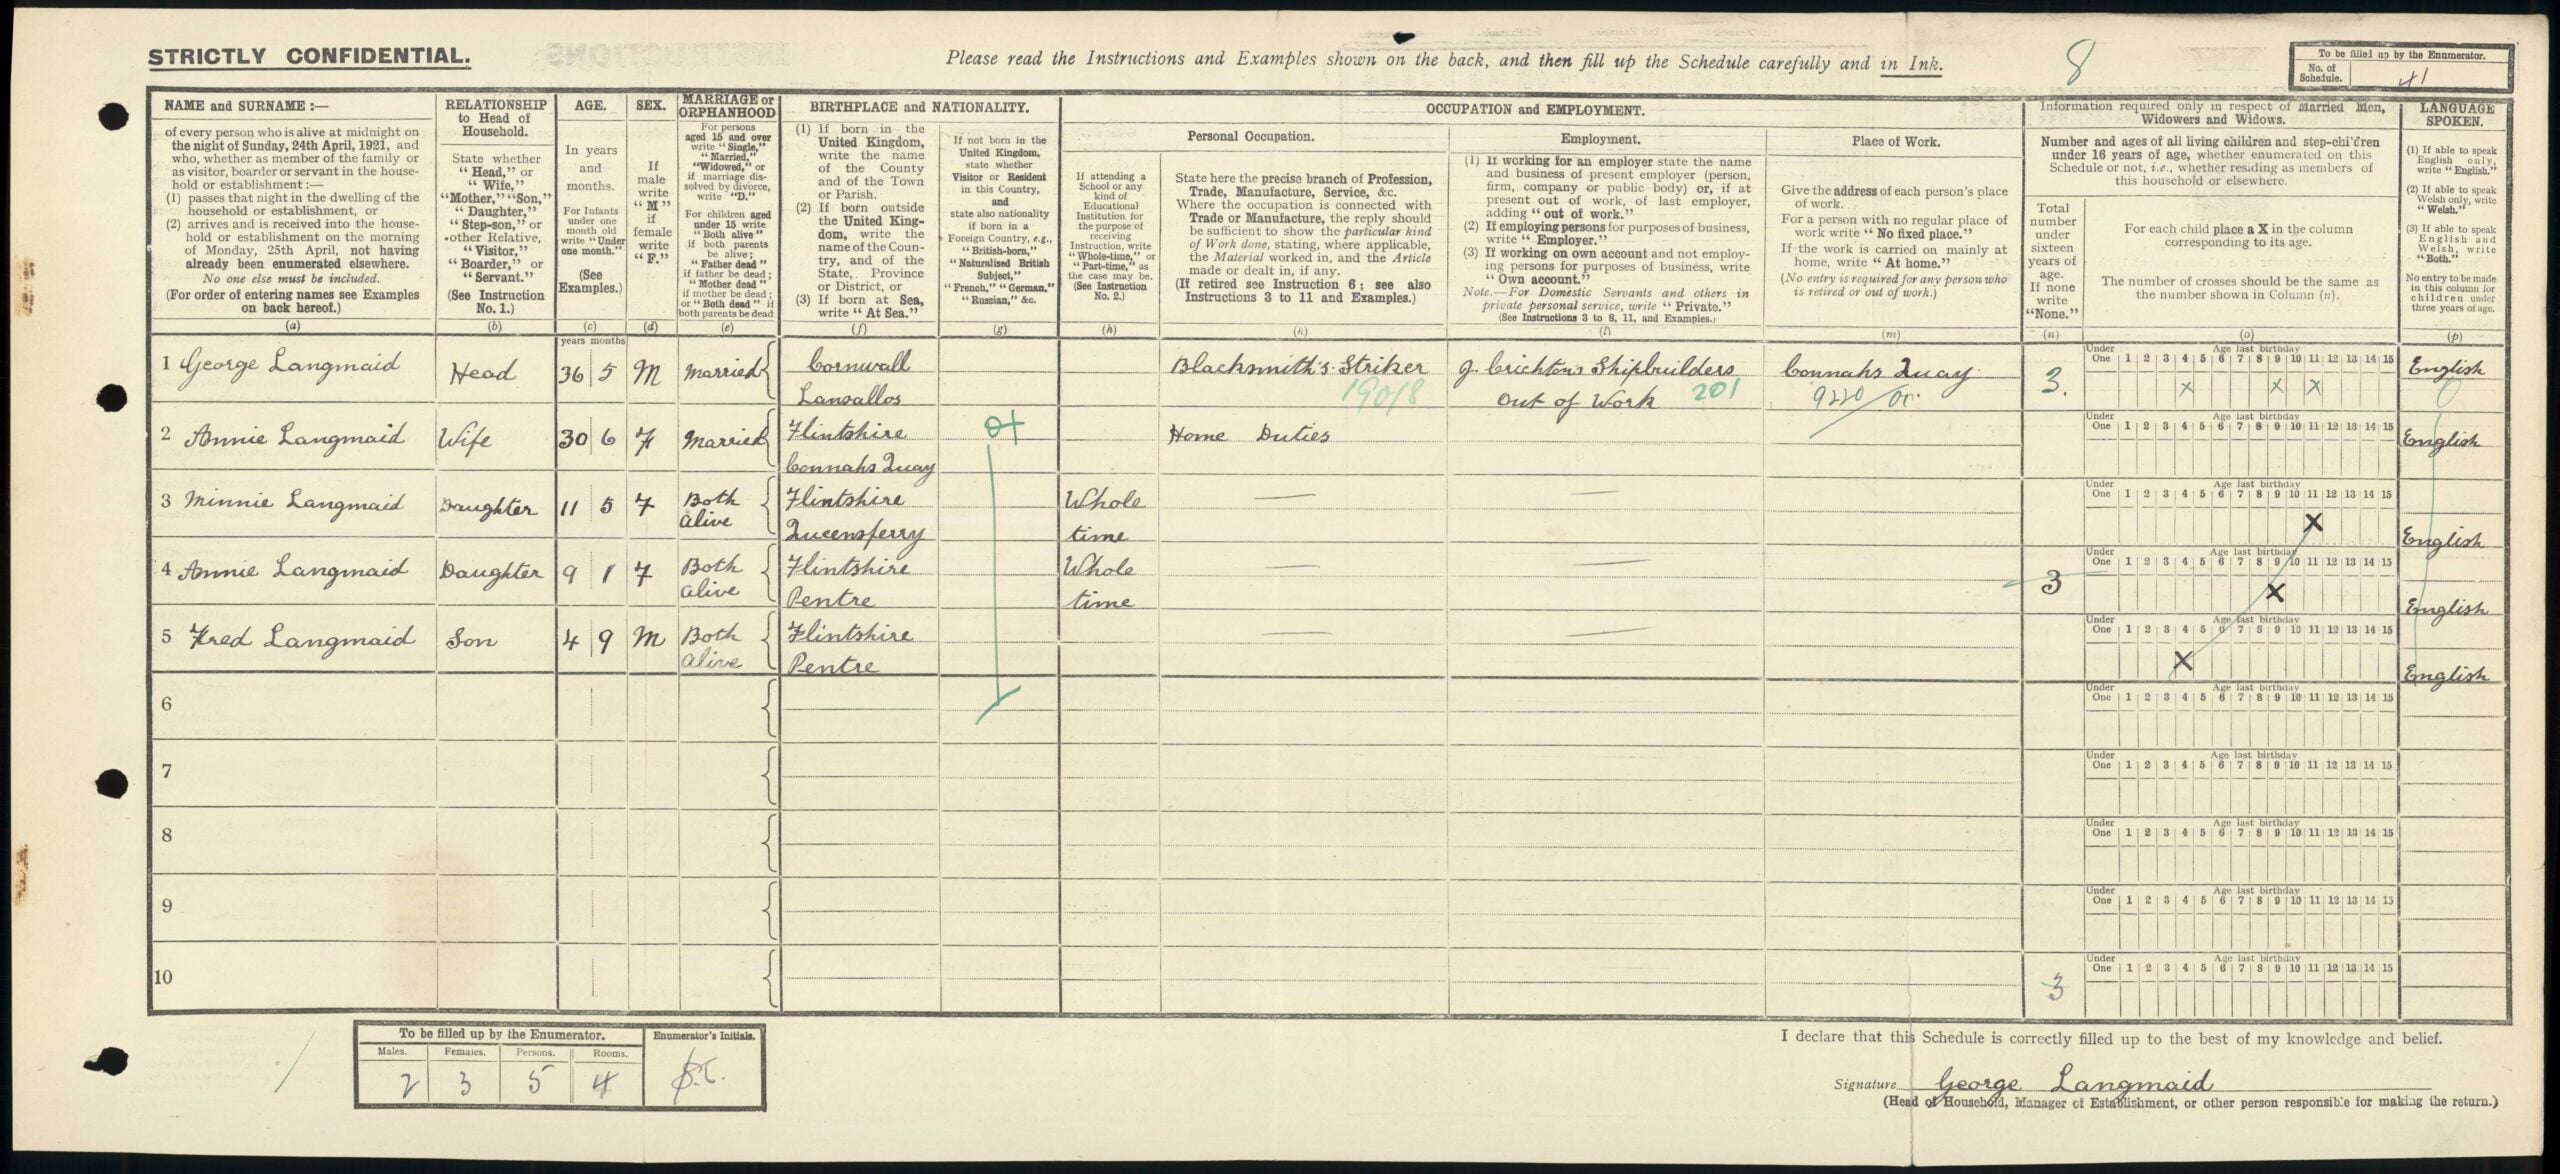 STRICTLY CONFIDENTIAL.
Please read the Instructions and Examples shown on the back, and then fill up the Schedule carefully and in Ink.
8
To be filled up by the Enumerator.
No. of Schedule. 41
NAME and SURNAME :—
of every person who is alive at midnight on
the night of Sunday, 24th April, 1921, and
who, whether as member of the family or
as visitor, boarder or servant in the house-
hold or establishment :—
(1) passes that night in the dwelling of the
household or establishment, or
(2) arrives and is received into the house-
hold or establishment on the morning
of Monday, 25th April, not having
already been enumerated elsewhere.
No one else must be included.
(For order of entering names see Examples
on back hereof.)
(a)
RELATIONSHIP
to Head of
Household.
State whether
"Head," or
"Wife,"
"Mother," "Son,"
"Daughter,"
"Step-son," or
other Relative,
"Visitor,"
"Boarder," or
"Servant."
(See Instruction
No. 1.)
(b)
AGE.
In years
and
months.
For Infants
under one
month old
write "Under
one month."
(See
Examples.)
(c)
SEX.
If
male
write
"M"
if
female
write
"F."
(d)
MARRIAGE or
ORPHANHOOD
For persons
aged 15 and over
write "Single,"
"Married,"
"Widowed," or
if marriage dis-
solved by divorce,
write "D."
For children aged
under 15 write
"Both alive"
if both parents
be alive;
"Father dead"
if father be dead;
"Mother dead"
if mother be dead;
or "Both dead" if
both parents be dead
(e)
BIRTHPLACE and NATIONALITY.
(1) If born in the
United Kingdom,
write the name
of the County
and of the Town
or Parish.
(2) If born outside
the United King-
dom, write the
name of the Coun-
try, and of the
State, Province
or District, or
(3) If born at Sea,
write "At Sea."
(f)
If not born in the
United Kingdom,
state whether
Visitor or Resident
in this Country,
and
state also nationality
if born in a
Foreign Country, e.g.,
"British-born,"
"Naturalised British
Subject,"
"French," "German,"
"Russian," &c.
(g)
OCCUPATION and EMPLOYMENT.
If attending a
School or any
kind of
Educational
Institution for
the purpose of
receiving
Instruction, write
"Whole-time," or
"Part-time," as
the case may be.
(See Instruction
No. 2.)
(h)
Personal Occupation.
State here the precise branch of Profession,
Trade, Manufacture, Service, &c.
Where the occupation is connected with
Trade or Manufacture, the reply should
be sufficient to show the particular kind
of Work done, stating, where applicable,
the Material worked in, and the Article
made or dealt in, if any.
(If retired see Instruction 6; see also
Instructions 3 to 11 and Examples.)
(k)
Employment.
(1) If working for an employer state the name
and business of present employer (person,
firm, company or public body) or, if at
present out of work, of last employer,
adding "out of work."
(2) If employing persons for purposes of business,
write "Employer."
(3) If working on own account and not employ-
ing persons for purposes of business, write
"Own account."
Note.—For Domestic Servants and others in
private personal service, write "Private."
(See Instructions 3 to 8, 11, and Examples.)
(l)
Place of Work.
Give the address of each person's place
of work.
For a person with no regular place of
work write "No fixed place."
If the work is carried on mainly at
home, write "At home."
(No entry is required for any person who
is retired or out of work.)
(m)
Information required only in respect of Married Men,
Widowers and Widows.
Number and ages of all living children and step-children
under 16 years of age, whether enumerated on this
Schedule or not, i.e., whether residing as members of
this household or elsewhere.
Total
number
under
sixteen
years of
age.
If none
write
"None."
(n)
For each child place a X in the column
corresponding to its age.
The number of crosses should be the same as
the number shown in Column (n).
(o)
LANGUAGE
SPOKEN.
(1) If able to speak
English only,
write "English."
(2) If able to speak
Welsh only, write
"Welsh."
(3) If able to speak
English and
Welsh, write
"Both."
No entry to be made
in this column for
children under
three years of age.
(p)
years months
1 George Langmaid Head 36 5 M Married Cornwall Lansallos Blacksmith's Striker 1908 J. Crichtons Shipbuilders Out of Work 201 Connahs Quay 9220/00 3. Under One 1 2 3 4 5 6 7 8 9 10 11 12 13 14 15 Age last birthday x x x English
2 Annie Langmaid Wife 30 6 F Married Flintshire Connahs Quay Home Duties Under One 1 2 3 4 5 6 7 8 9 10 11 12 13 14 15 Age last birthday English
3 Minnie Langmaid Daughter 11 5 F Both alive Flintshire Queensferry Whole time — — Under One 1 2 3 4 5 6 7 8 9 10 11 12 13 14 15 Age last birthday X English
4 Annie Langmaid Daughter 9 1 F Both alive Flintshire Pentre Whole time — — 3 Under One 1 2 3 4 5 6 7 8 9 10 11 12 13 14 15 Age last birthday X English
5 Fred Langmaid Son 4 9 M Both alive Flintshire Pentre — — Under One 1 2 3 4 5 6 7 8 9 10 11 12 13 14 15 Age last birthday X English
6 Under One 1 2 3 4 5 6 7 8 9 10 11 12 13 14 15 Age last birthday
7 Under One 1 2 3 4 5 6 7 8 9 10 11 12 13 14 15 Age last birthday
8 Under One 1 2 3 4 5 6 7 8 9 10 11 12 13 14 15 Age last birthday
9 Under One 1 2 3 4 5 6 7 8 9 10 11 12 13 14 15 Age last birthday
10 3 Under One 1 2 3 4 5 6 7 8 9 10 11 12 13 14 15 Age last birthday
To be filled up by the Enumerator.
Males. Females. Persons. Rooms.
2 3 5 4
Enumerator's Initials.
I declare that this Schedule is correctly filled up to the best of my knowledge and belief.
Signature George Langmaid
(Head of Household, Manager of Establishment, or other person responsible for making the return.)